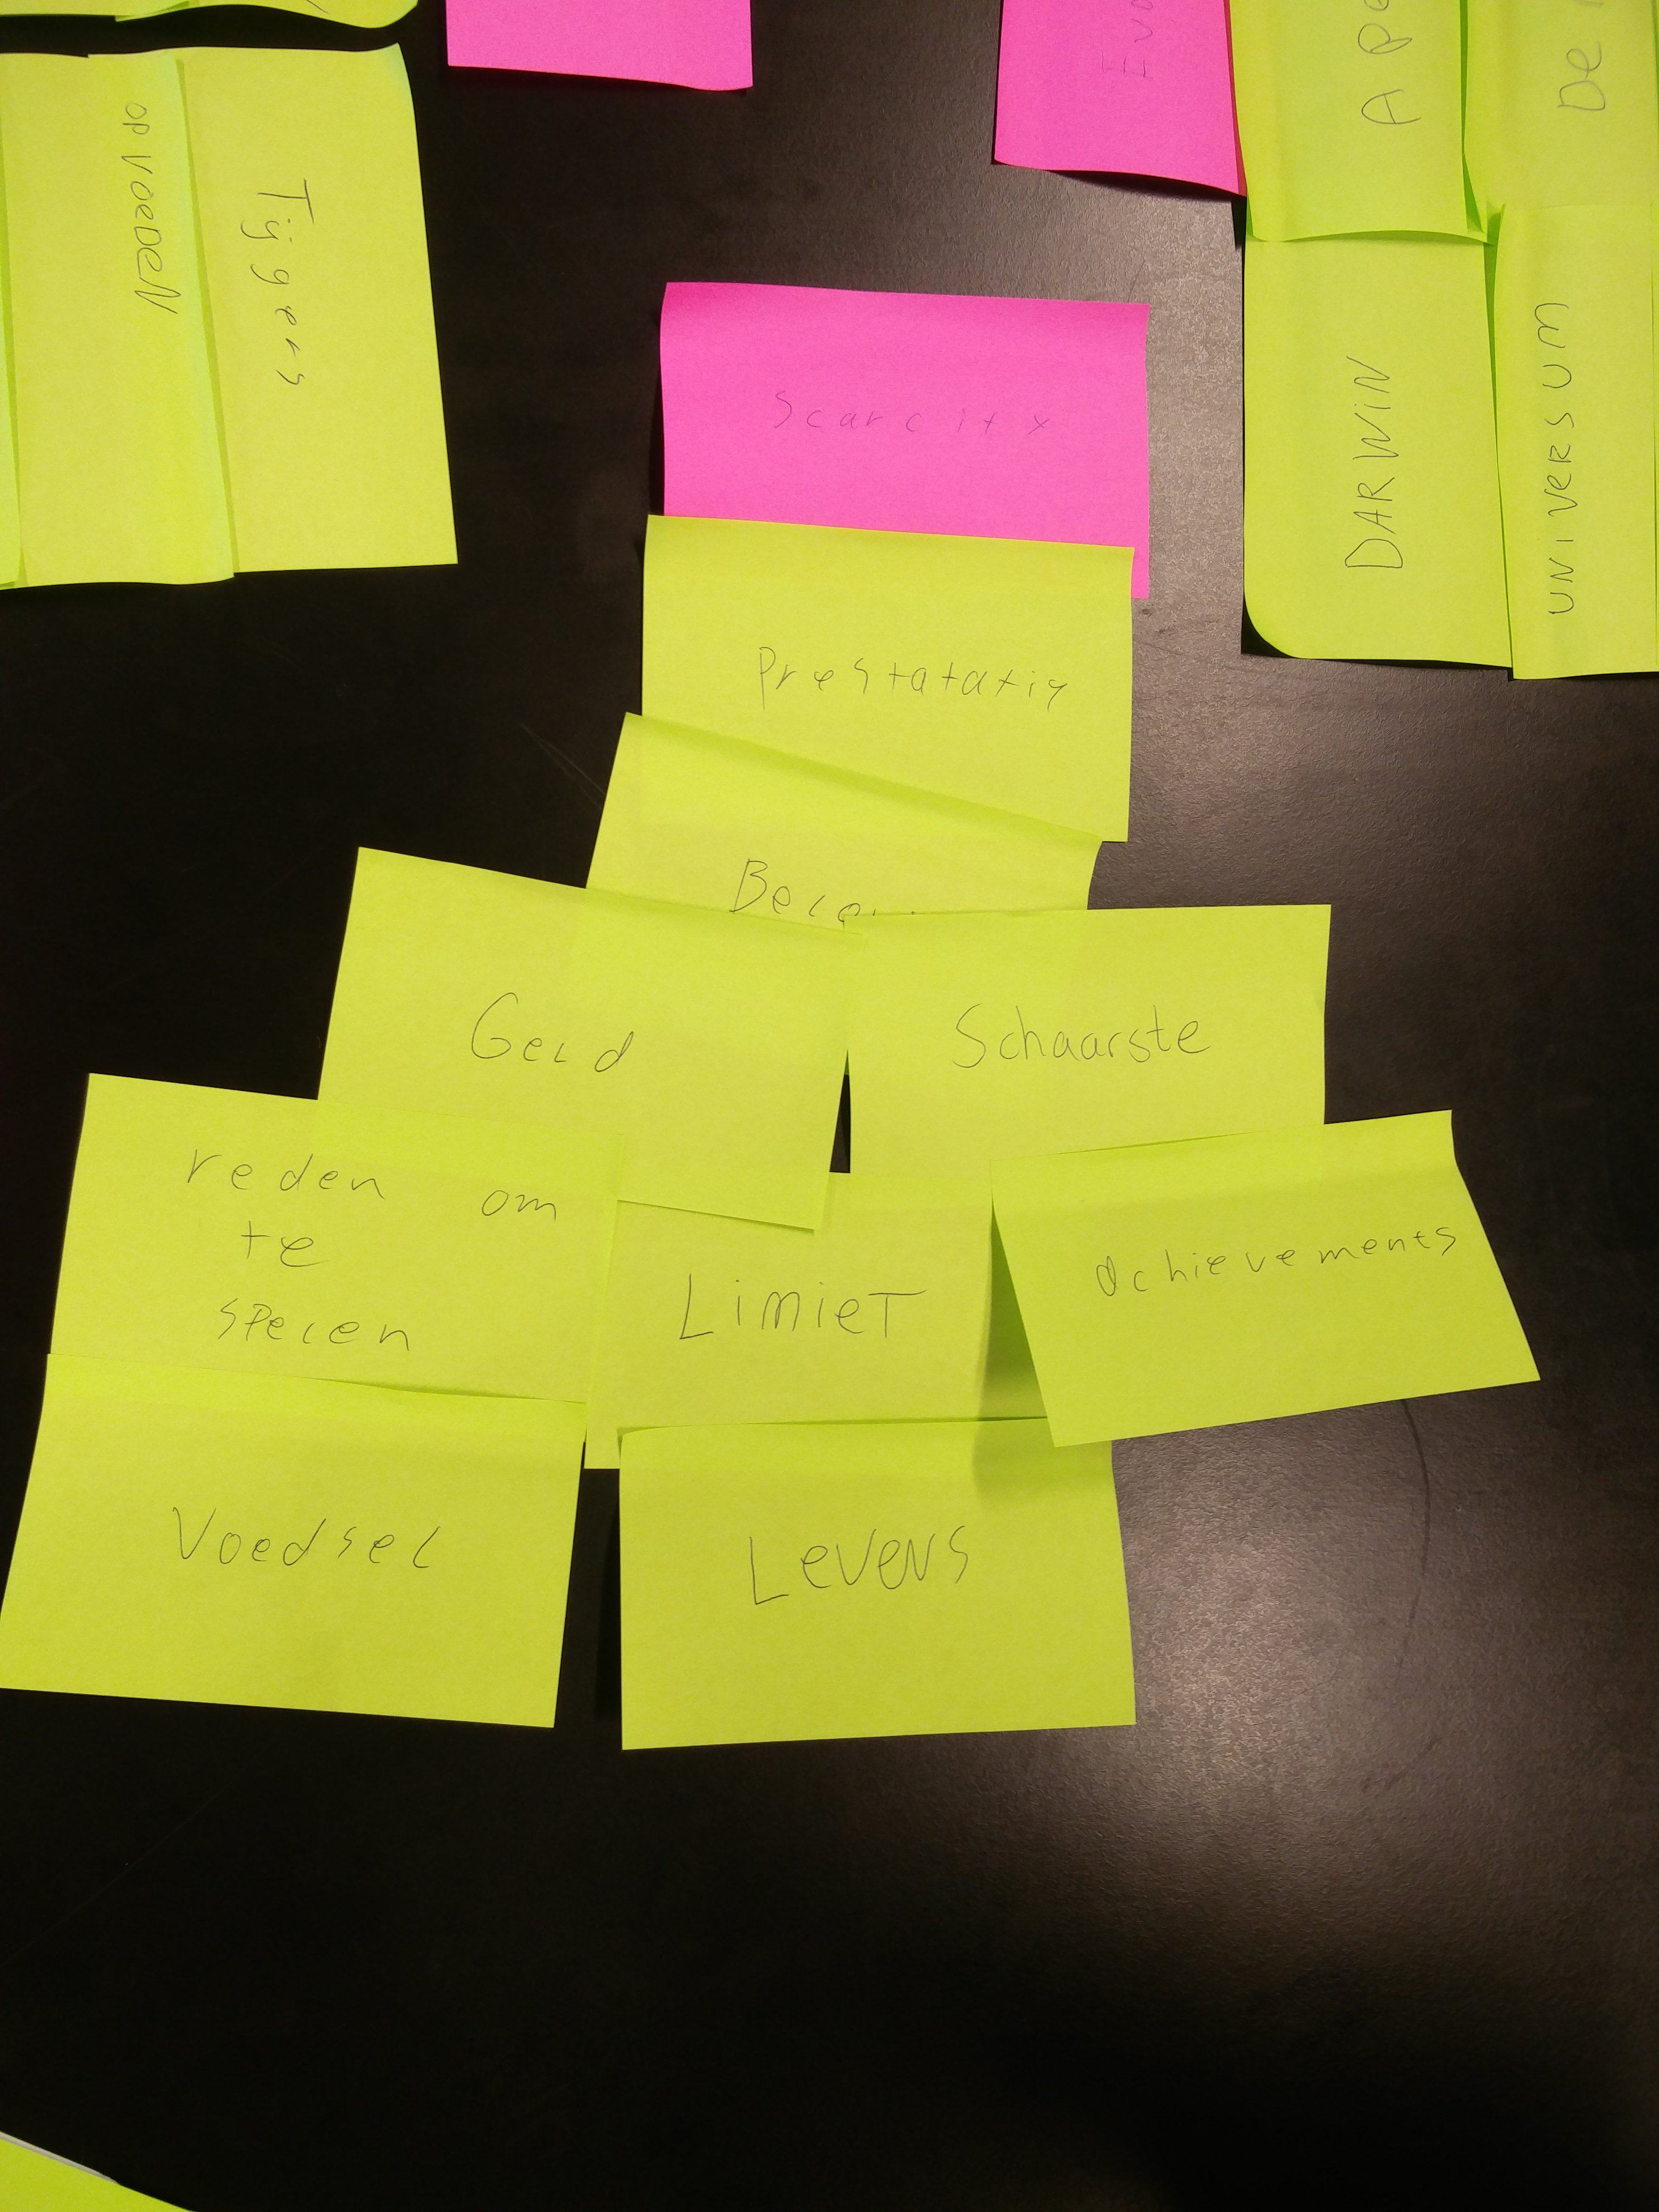 opvoeden
Tijgers
DARWIN
UNIVERSUM
Scarcity
Prestatatie
Geld
Schaarste
reden om
te
spelen
Limiet
achievements
Voedsel
Levens